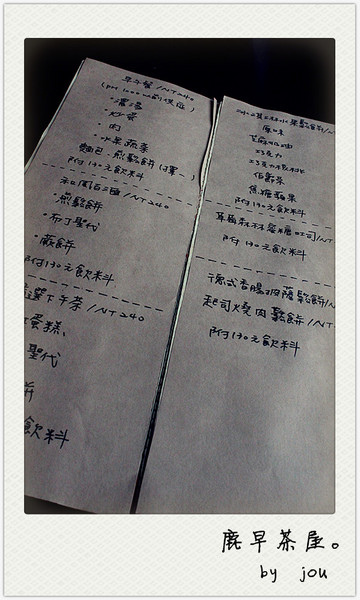 早午餐/NT240
(pm 1000以前供應)
·濃湯
·炒蛋
·肉
·水果蔬菜
麵包.煎鬆餅(擇一)
附130元飲料
和風三國/NT240
·煎鬆餅
·布丁聖代
·蕨餅
附130元飲料
選下午茶/NT240
蛋糕、
聖代
餅
飲料
原味
巧克力
伯爵茶
焦糖蘋果
附130元飲料
吐司/NT
附130元飲料
德式香腸披薩鬆餅/N
起司燒肉鬆餅/NT
附130元飲料
鹿早茶屋。
by jou